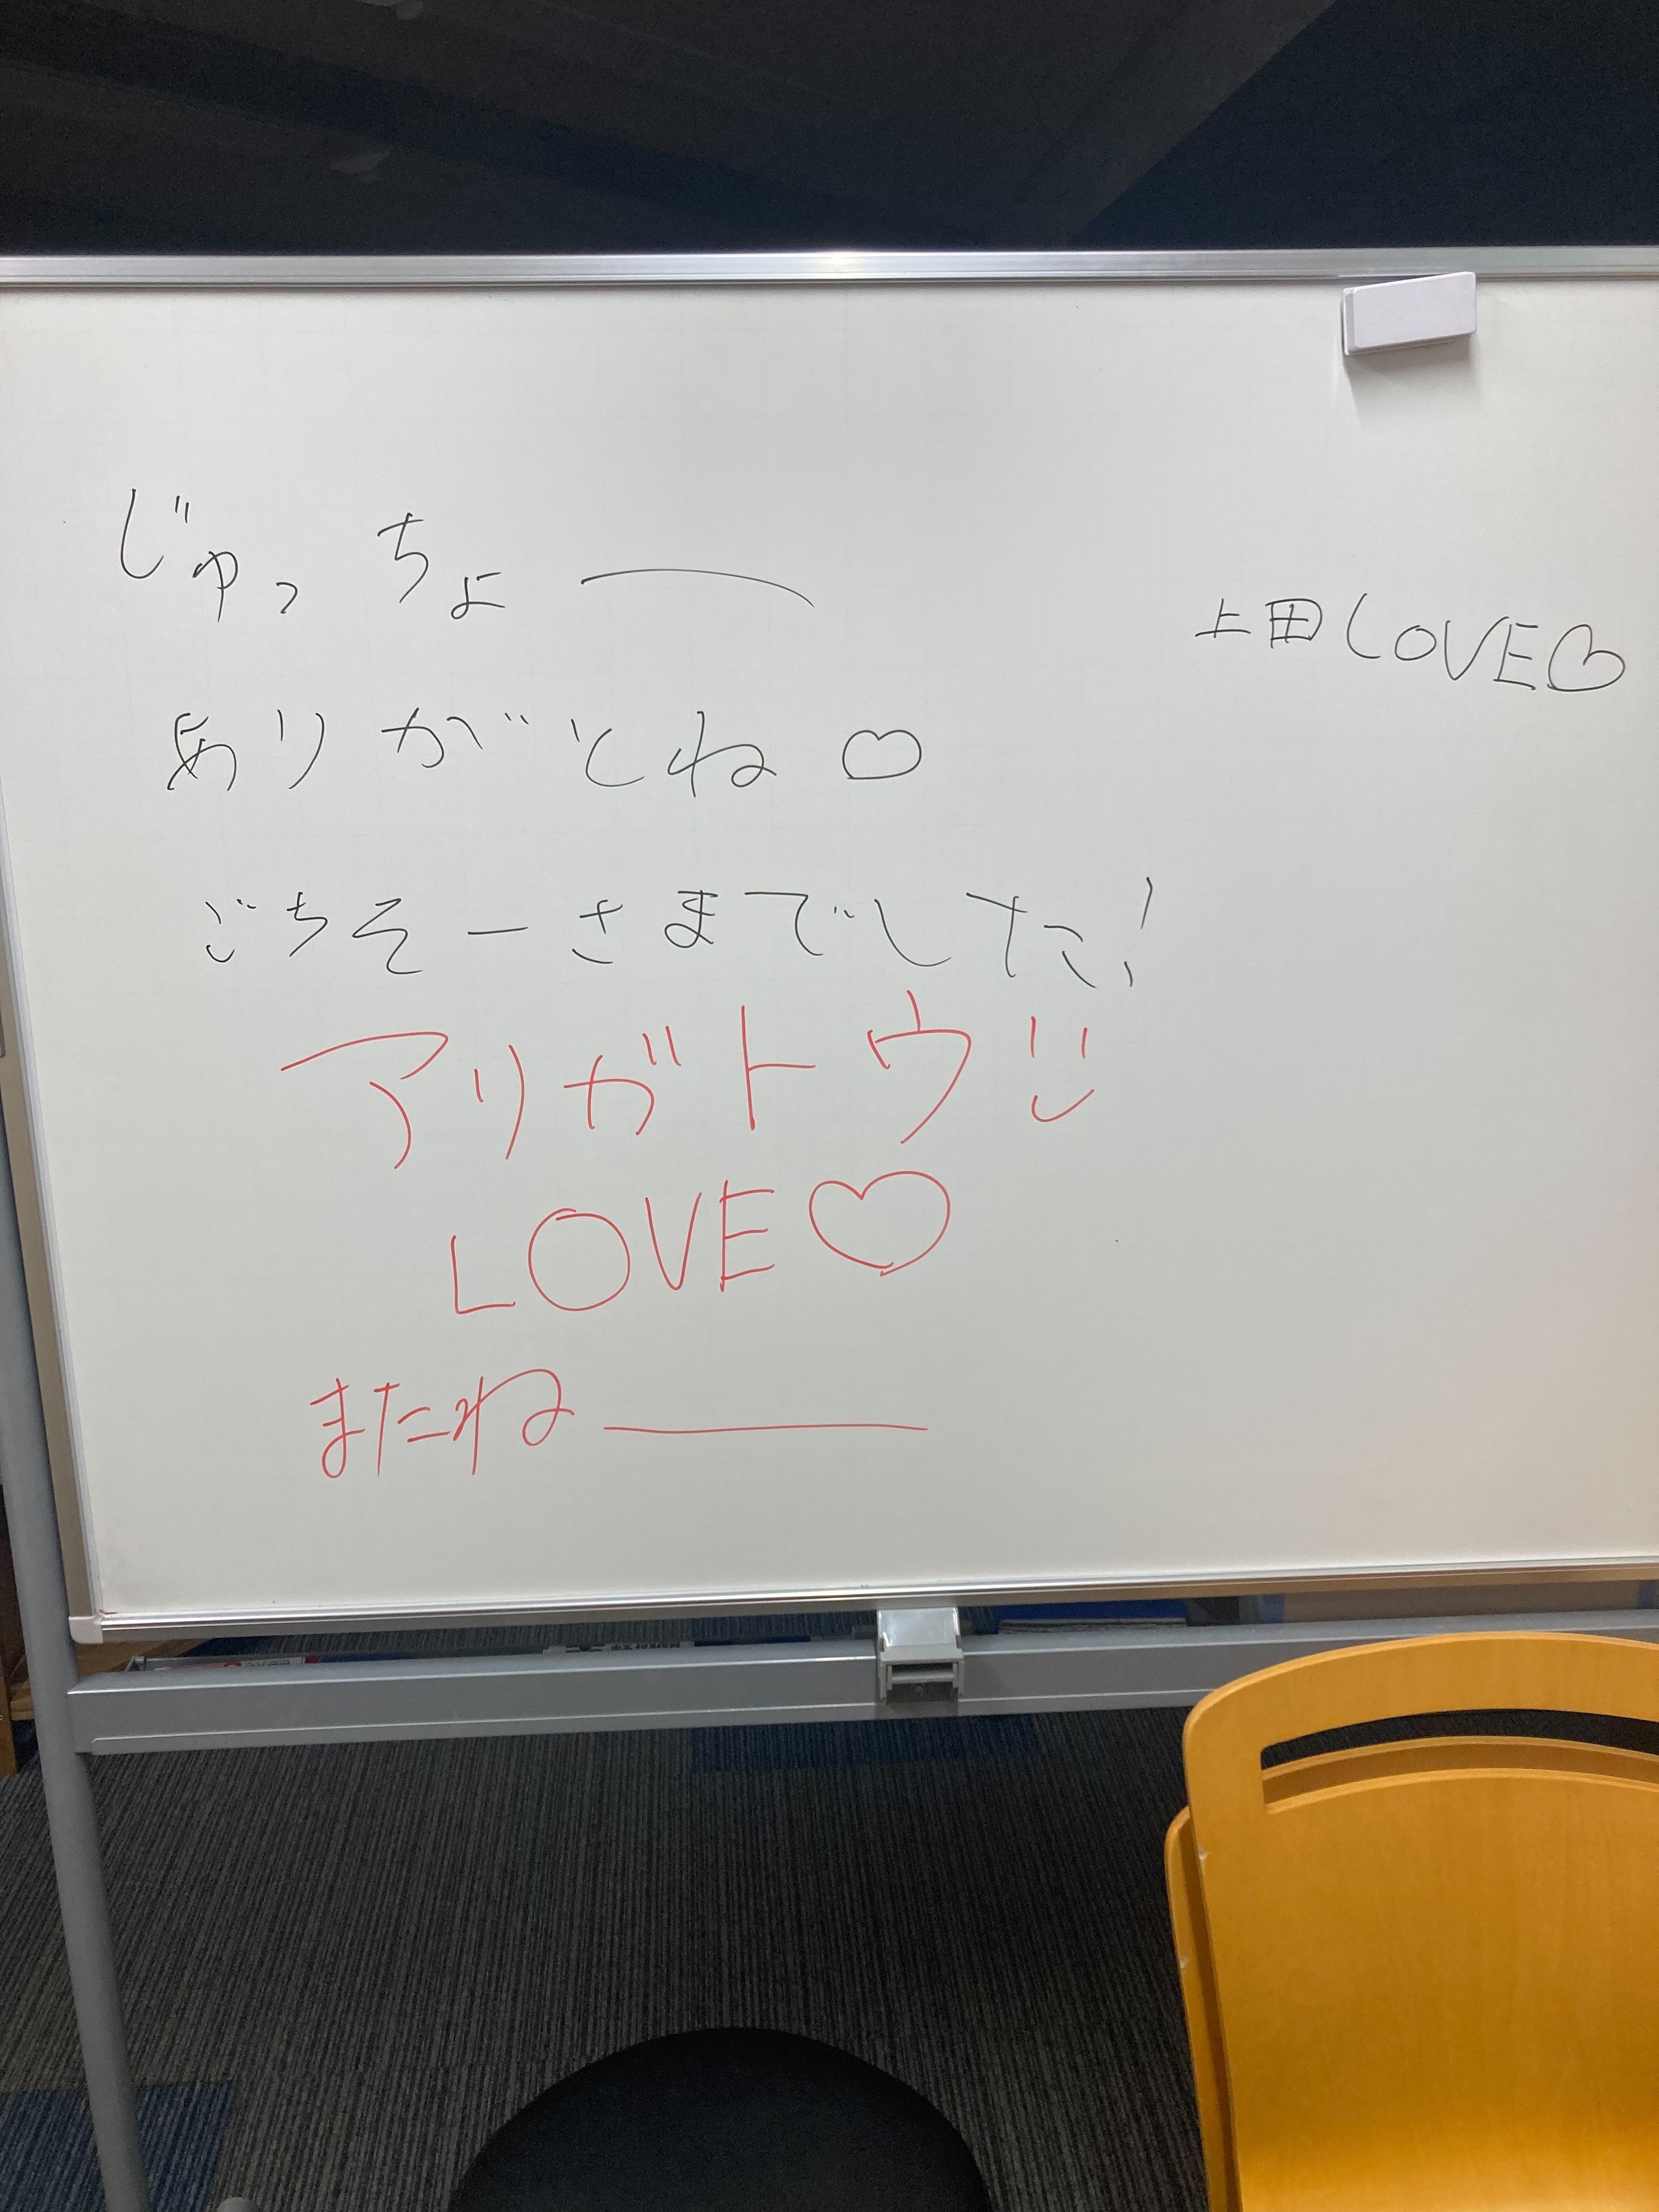 じゅっちょー
上田LOVE♡
ありがとね♡
ごちそーさまでした!
アリガトウ
LOVE♡
またねー